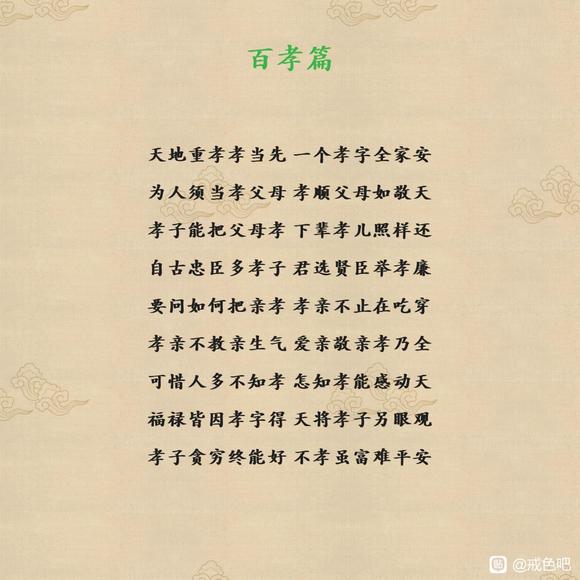 百孝篇
天地重孝孝当先 一个孝字全家安
为人须当孝父母 孝顺父母如敬天
孝子能把父母孝 下辈孝儿照样还
自古忠臣多孝子 君选贤臣举孝廉
要问如何把亲孝 孝亲不止在吃穿
孝亲不教亲生气 爱亲敬亲孝乃全
可惜人多不知孝 怎知孝能感动天
福禄皆因孝字得 天将孝子另眼观
孝子贪穷终能好 不孝虽富难平安
贴 @戒色吧